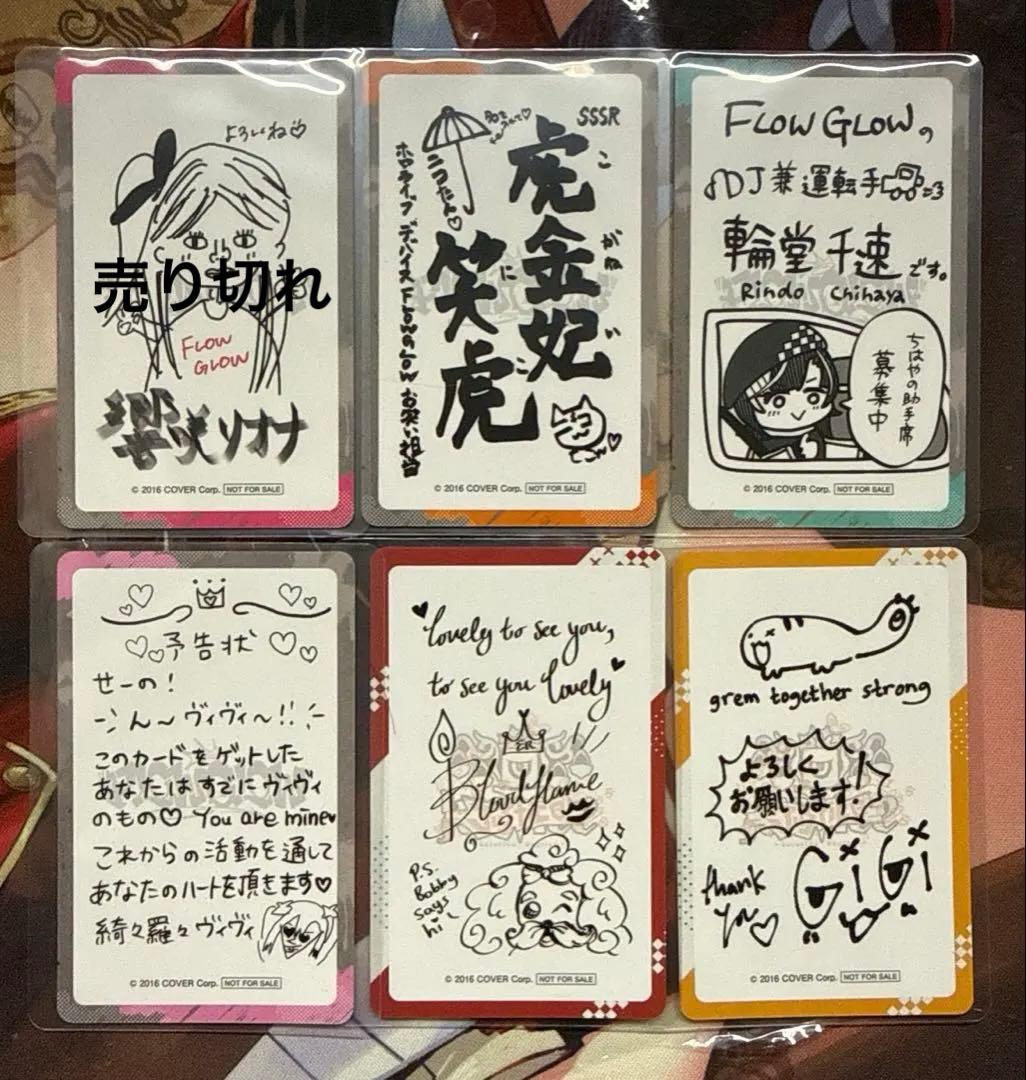 よろしいね♡
売り切れ
FLOW
GLOW
響咲リオナ
© 2016 COVER Corp. NOT FOR SALE
SSSR
虎金妃
こがねい
笑虎
にこ
ニコたん♡
ホロライブ デバイス FLOW GLOW お笑い担当
© 2016 COVER Corp. NOT FOR SALE
FLOW GLOWの
DJ兼運転手
輪堂 千速です。
Rindo Chihaya
ちはやの助手席
募集中
© 2016 COVER Corp. NOT FOR SALE
予告状
せーの!
ん～ヴィヴィ～!!
このカードをゲットした
あなたはすでにヴィヴィ
のもの♡ You are mine♥
これからの活動を通して
あなたのハートを頂きます♡
綺々羅々ヴィヴィ
© 2016 COVER Corp. NOT FOR SALE
♥lovely to see you,
to see you lovely♥
ER
Bloodflame
P.S.
Bobby
says
hi
© 2016 COVER Corp. NOT FOR SALE
grem together strong
よろしく
お願いします!
thank
you♡
GiGi
© 2016 COVER Corp. NOT FOR SALE